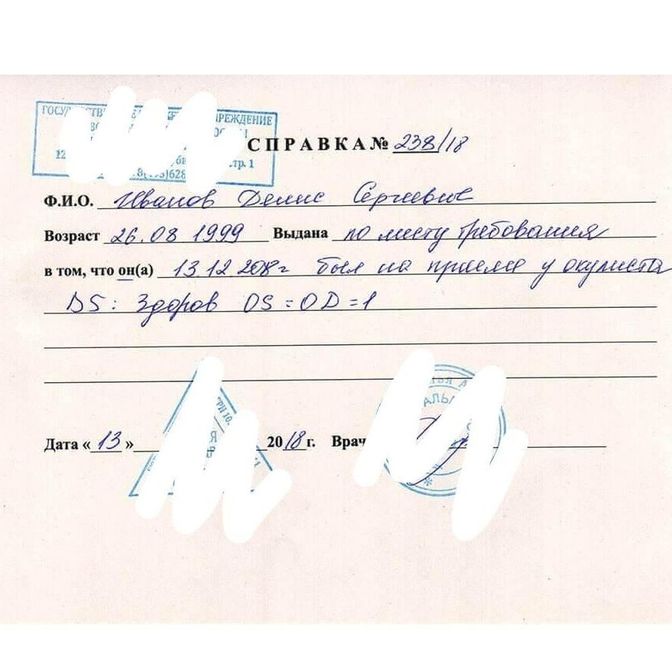 ГОСУДАРСТВ РЕЖДЕНИЕ
12 стр. 1
628
СПРАВКА № 238/18
Ф.И.О. Иванов Денис Сергеевич
Возраст 26.08 1999 Выдана по месту требования
в том, что он(а) 13 12 2018 г был на приеме у окулиста
DS: Здоров OS = OD = 1
Дата « 13 » 2018 г. Врач